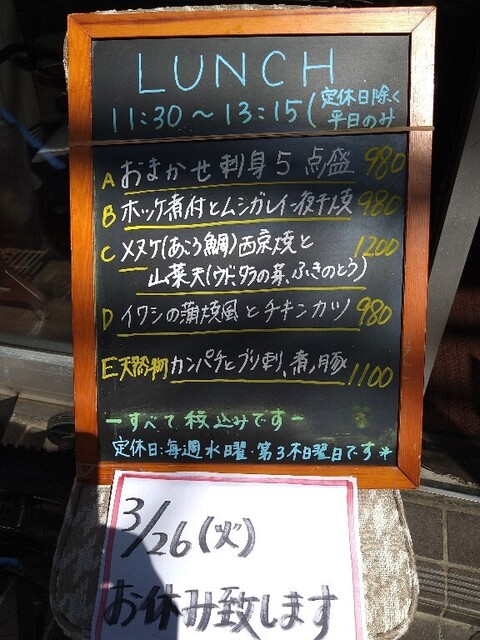 LUNCH
11:30～13:15(定休日除く
平日のみ
A おまかせ刺身5点盛 980
B ホッケ煮付とムシガレイ一夜干焼 980
C メヌケ(あこう鯛)西京焼と 1200
山菜天(ウド、タラの芽、ふきのとう)
D イワシの蒲焼風とチキンカツ 980
E 天然物カンパチとブリ刺、煮豚 1100
ーすべて税込みですー
定休日:毎週水曜・第3木曜日です*
3/26(火)
お休み致します